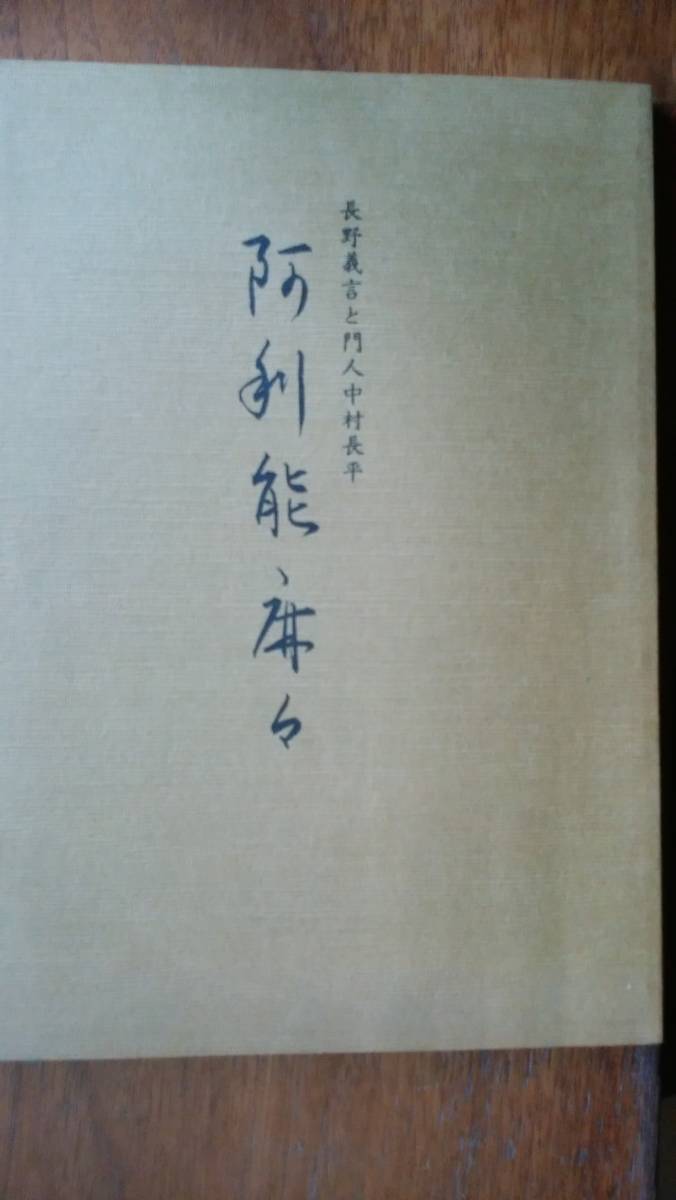 長野義言と門人中村長平
阿利能麻々